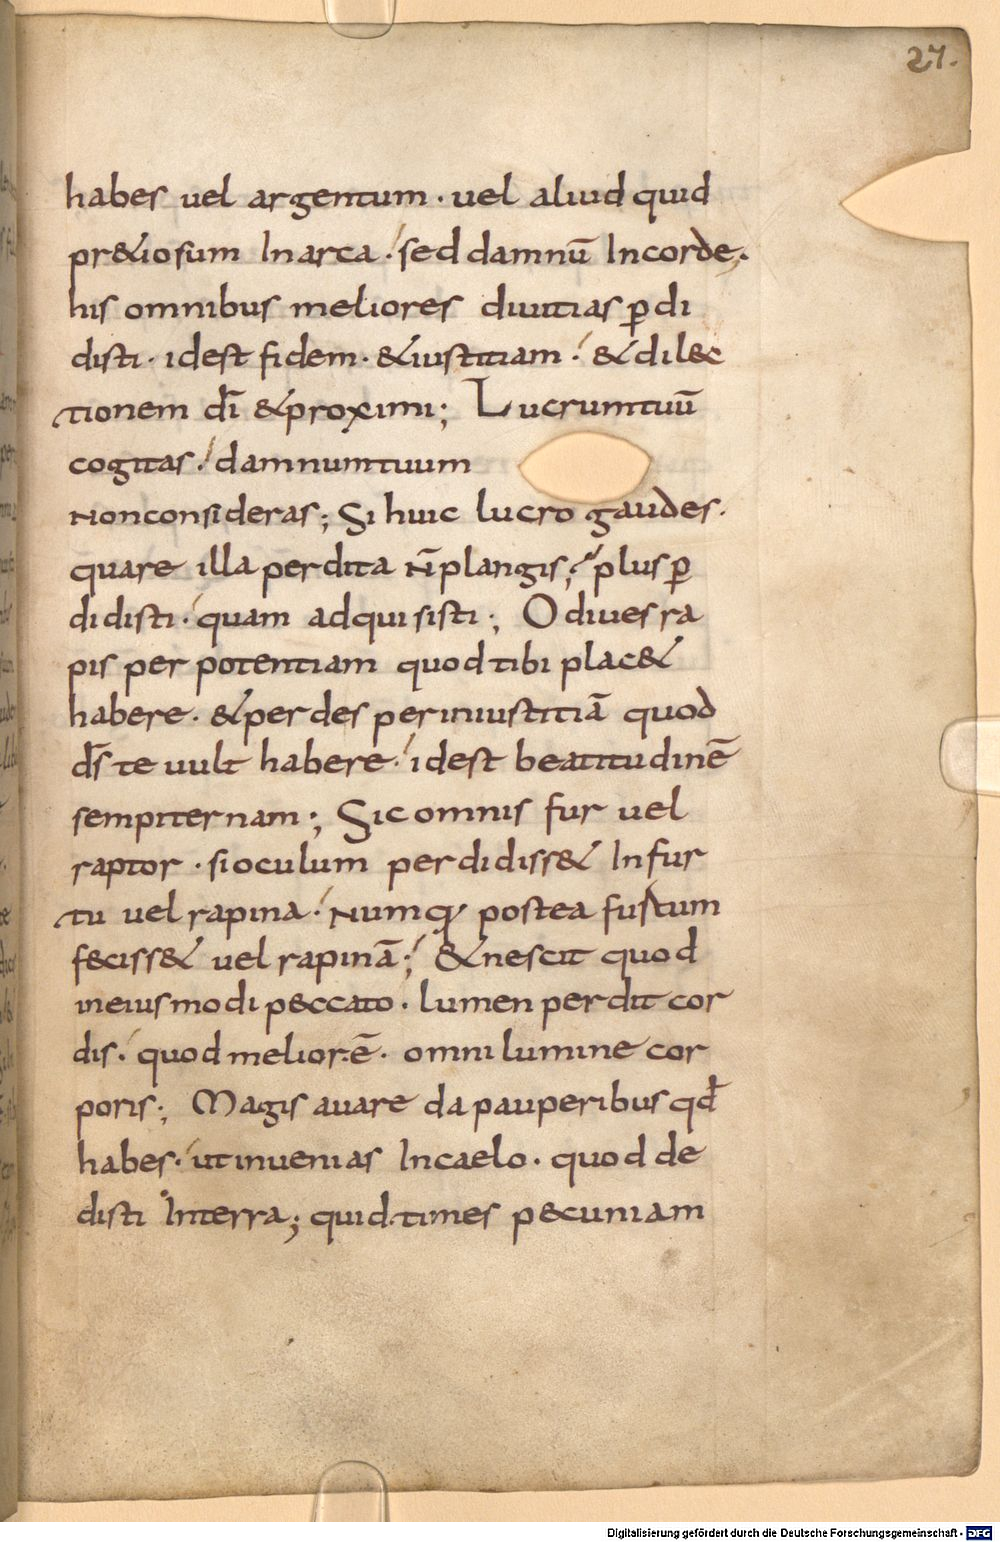 27.
habes uel argentum · uel aliud quid
pr&iosum In arca ·/ sed damnū In corde ·
his omnibus meliores diuitias ꝑdi
disti · idest fidem · &iustitiam ·/ & dil&c
tionem dī &proximi; Lucrumtuū
cogitas ·/ damnumtuum
nonconsideras; Si huic lucro gaudes ·
quare illa perdita n̄ plangis; plus ꝑ
didisti ·/ quam adquisisti; O diues ra
pis per potentiam quod tibi plac&
habere · &perdes per iniustitiā quod
ds̄ te uult habere ·/ idest beatitudinē
sempiternam; Sic omnis fur uel
raptor · si oculum perdidiss& In fur
tu uel rapina ·/ numꝗ postea furtum
feciss& uel rapinā; & nescit quod
ineiusmodi peccato · lumen perdit cor
dis ·/ quod melior · ē · omni lumine cor
poris; Magis auare da pauperibus qd̄
habes ·/ ut inuenias In caelo · quod de
disti In terra; quid · times pecuniam
Digitalisierung gefördert durch die Deutsche Forschungsgemeinschaft - DFG